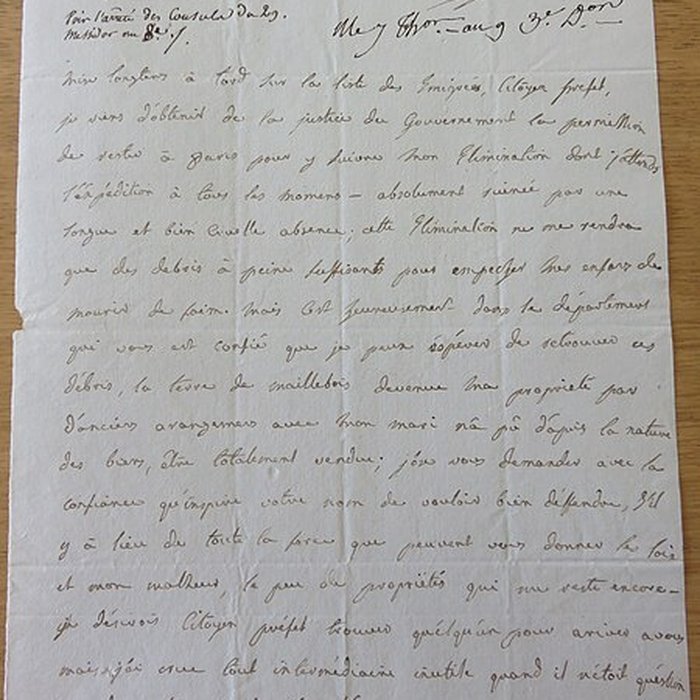 Voir l'arrêté des Consuls du 29
Messidor an 8e.
au 9 3e. Don
mise longtems à tord sur la liste des Emigrées, Citoyen prefet,
je viens d'obtenir de la justice du Gouvernement la permission
de rester à paris pour y suivre mon Elimination dont j'attends
l'expédition à tous les momens – absolument ruinée par une
longue et bien cruelle absence; cette Elimination ne me rendra
que des debris à peine suffisants pour empecher mes enfans de
mourir de faim. mais c'est heureusement dans le département
qui vous est confié que je peux éspérer de retrouver ces
débris, la terre de maillebois devenue ma propriété par
d'anciens arangemens avec mon mari n'a pû d'apuis la nature
des biens, être totalement vendue; j'ose vous demander avec la
confiance qu'inspire votre nom de vouloir bien déffendre, s'il
y à lieu de toute la force que peuvent vous donner les lois
et mon malheur, le peu de propriétés qui me reste encore –
je désirois Citoyen préfet trouver quelqu'un pour arriver a vous
mais j'ai crue tout intermédiaire inutile quand il n'étoit quéstion